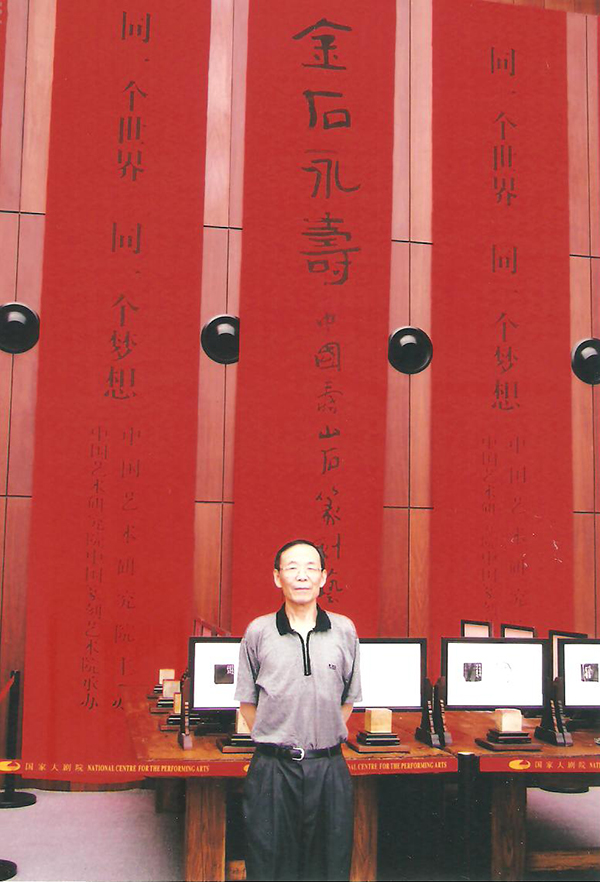 同一个世界 同一个梦想
中国艺术研究院主办
中国艺术研究院中国篆刻艺术院承办
金石永壽
中國壽山石篆刻藝
同一个世界 同一个梦想
中国艺术研究
中国艺术研究院中国篆刻艺术
国家大剧院 NATIONAL CENTRE FOR THE PERFORMING ARTS
FOR THE PERFORMING ARTS
国家大剧院 NATIONAL CENTRE FOR THE